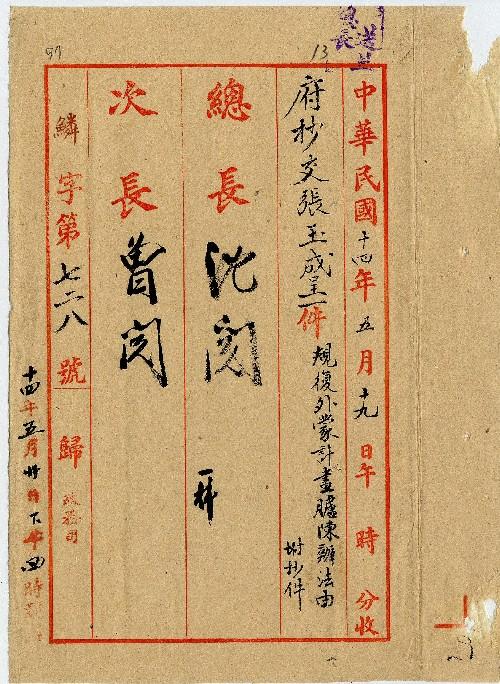 中華民國十四年五月十九日午 時 分收
府抄交張玉成呈一件
規復外蒙計畫臚陳辦法由
附抄件
總長 沈閱
次長 曾閱
鱗字第七二八號 歸
政務司
十四年五月廿日下午四時
97
13